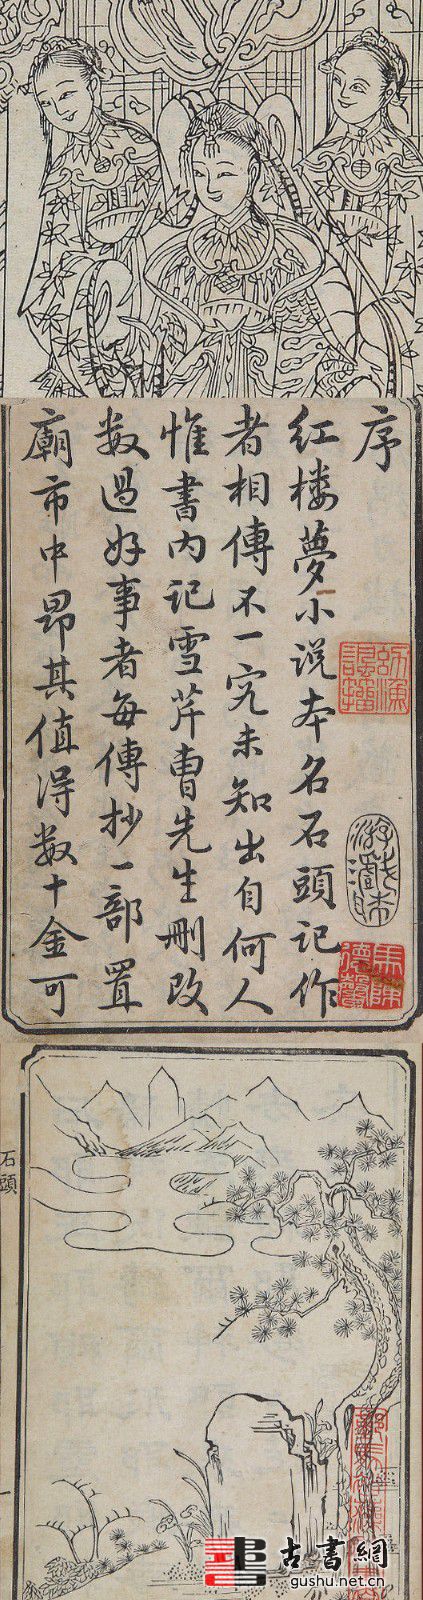 序
红楼夢小说本名石頭记作
者相傳不一究未知出自何人
惟書内记雪芹曹先生删改
数過好事者每傳抄一部置
廟市中昂其值得数十金可
石頭
古書網
gushu.net.cn